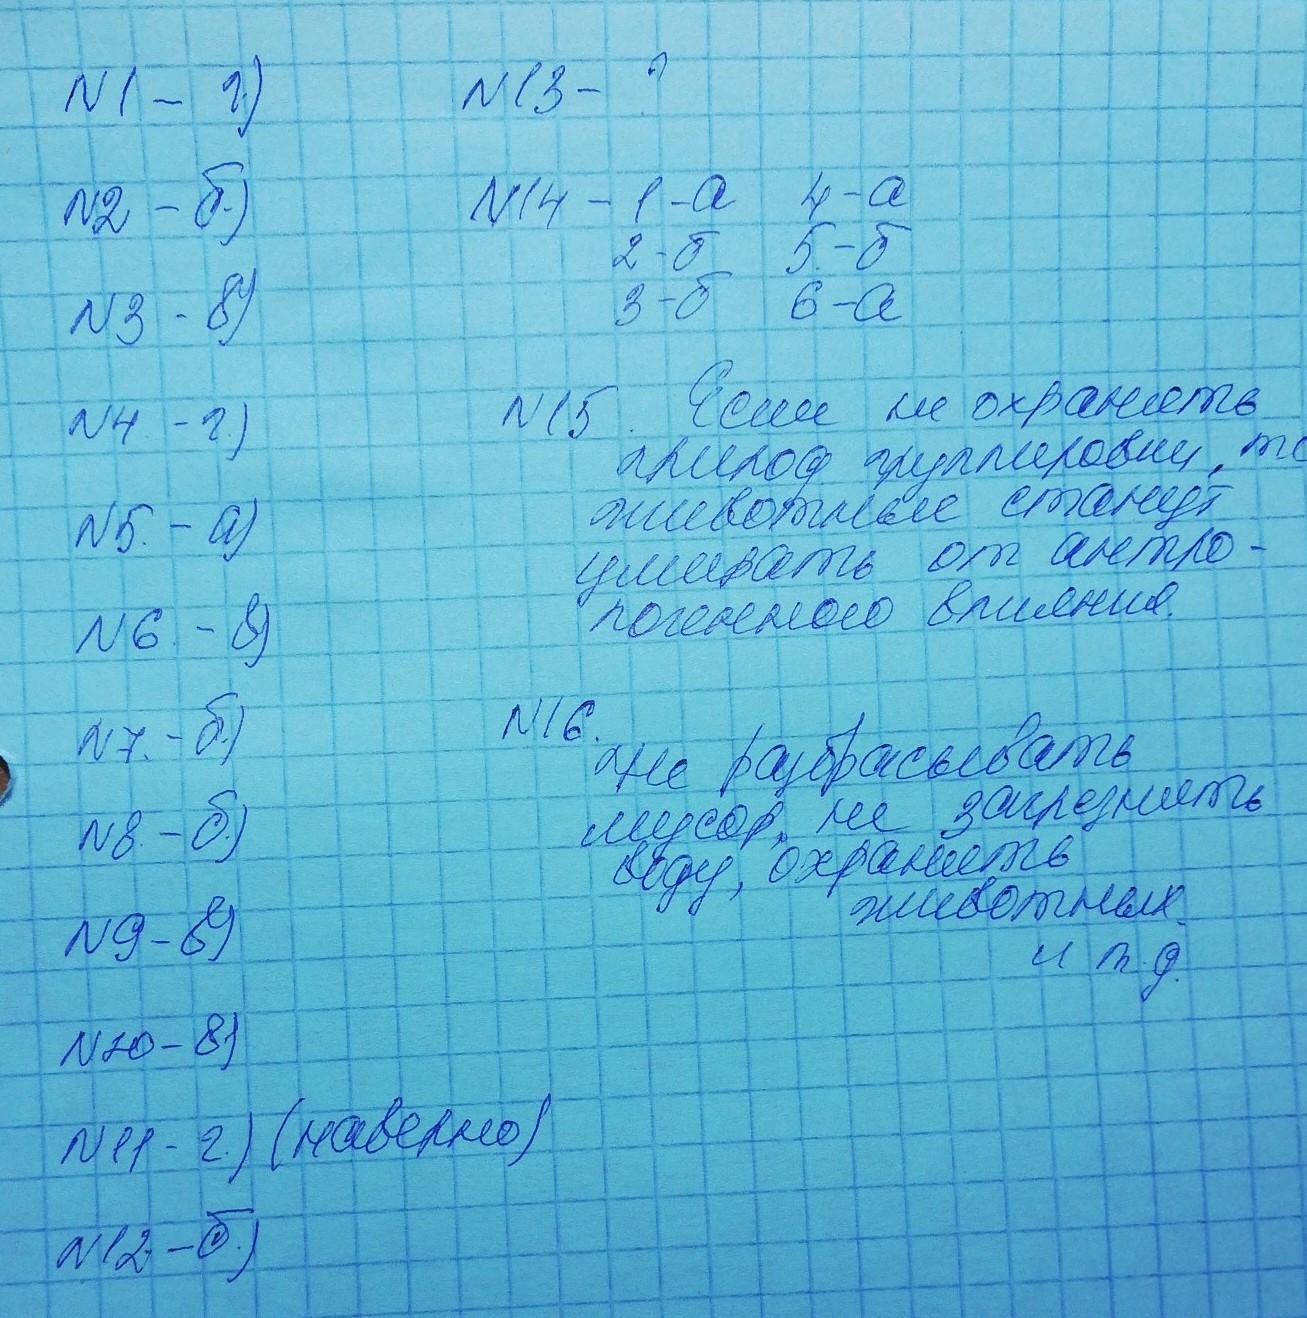 N1 - г.)
N2 - б.)
N3 - в)
N4 - г.)
N5. - а)
N6. - в)
N7. - б.)
N8. - б.)
N9 - в)
N10 - в)
N11 - г.) (наверно)
N12 - б.)
N13 - ?
N14 - 1 - а 4 - а
2 - б 5. - б
3 - б 6 - а
N15. Если не охранять
природ группировки, то
животные станут
умирать от антро-
погенного влияния.
N16.
Не разбрасывать
мусор, не загрезнять
воду, охранять
животных
и т.д.